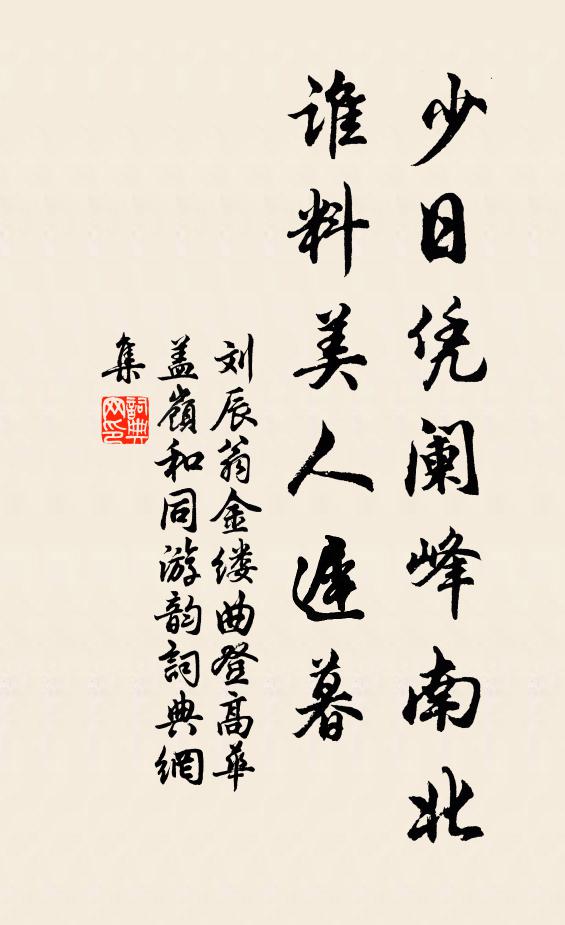 少日凭阑峰南北
谁料美人迟暮
刘辰翁金缕曲登高华
盖嶺和同游韵詞典網
集
詞典网印